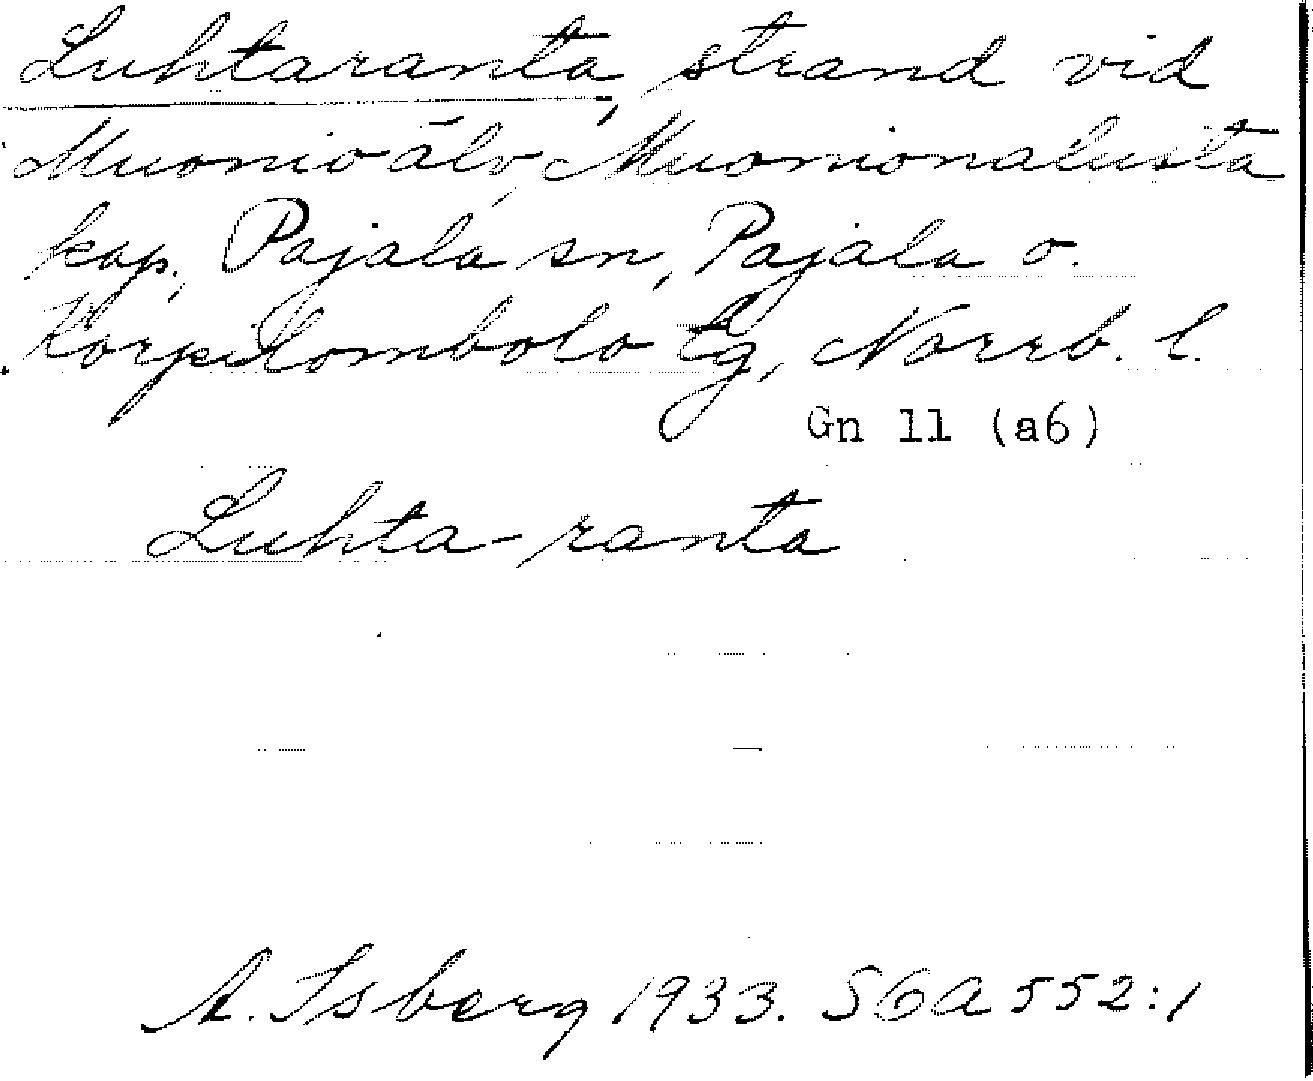 Luhtaranta, strand vid
Muonio älv, Muonionalusta
kap., Pajala sn, Pajala o.
Korpilombolo tg, Norrb. l.
Gn 11 (a6)
Luhta-ranta
A. Isberg 1933. SOA 552:1